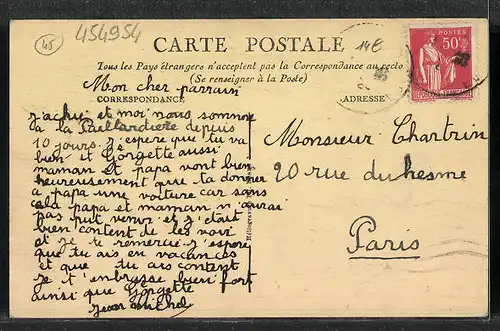 45
454954
14E
CARTE POSTALE
Tous les Pays étrangers n'acceptent pas la Correspondance au recto
(Se renseigner à la Poste)
CORRESPONDANCE
ADRESSE
POSTES
50c
Mon cher parrain
et moi nous somme
a la Paillardiere depuis
10 jours j'espere que tu va
bien et Gorgette aussi
maman et papa vont bien
heureusement que ta donner
a papa une voiture car sans
papa et maman n'aurai
pas put venir et j'était
bien content de les voir
et je te remerci j'espere
que tu ais en vacances
et que tu ais content
je t'enbrasse bien fort
ainsi que Gorgette
Jean Michel
Monsieur Chartrin
20 rue duhesme
Paris